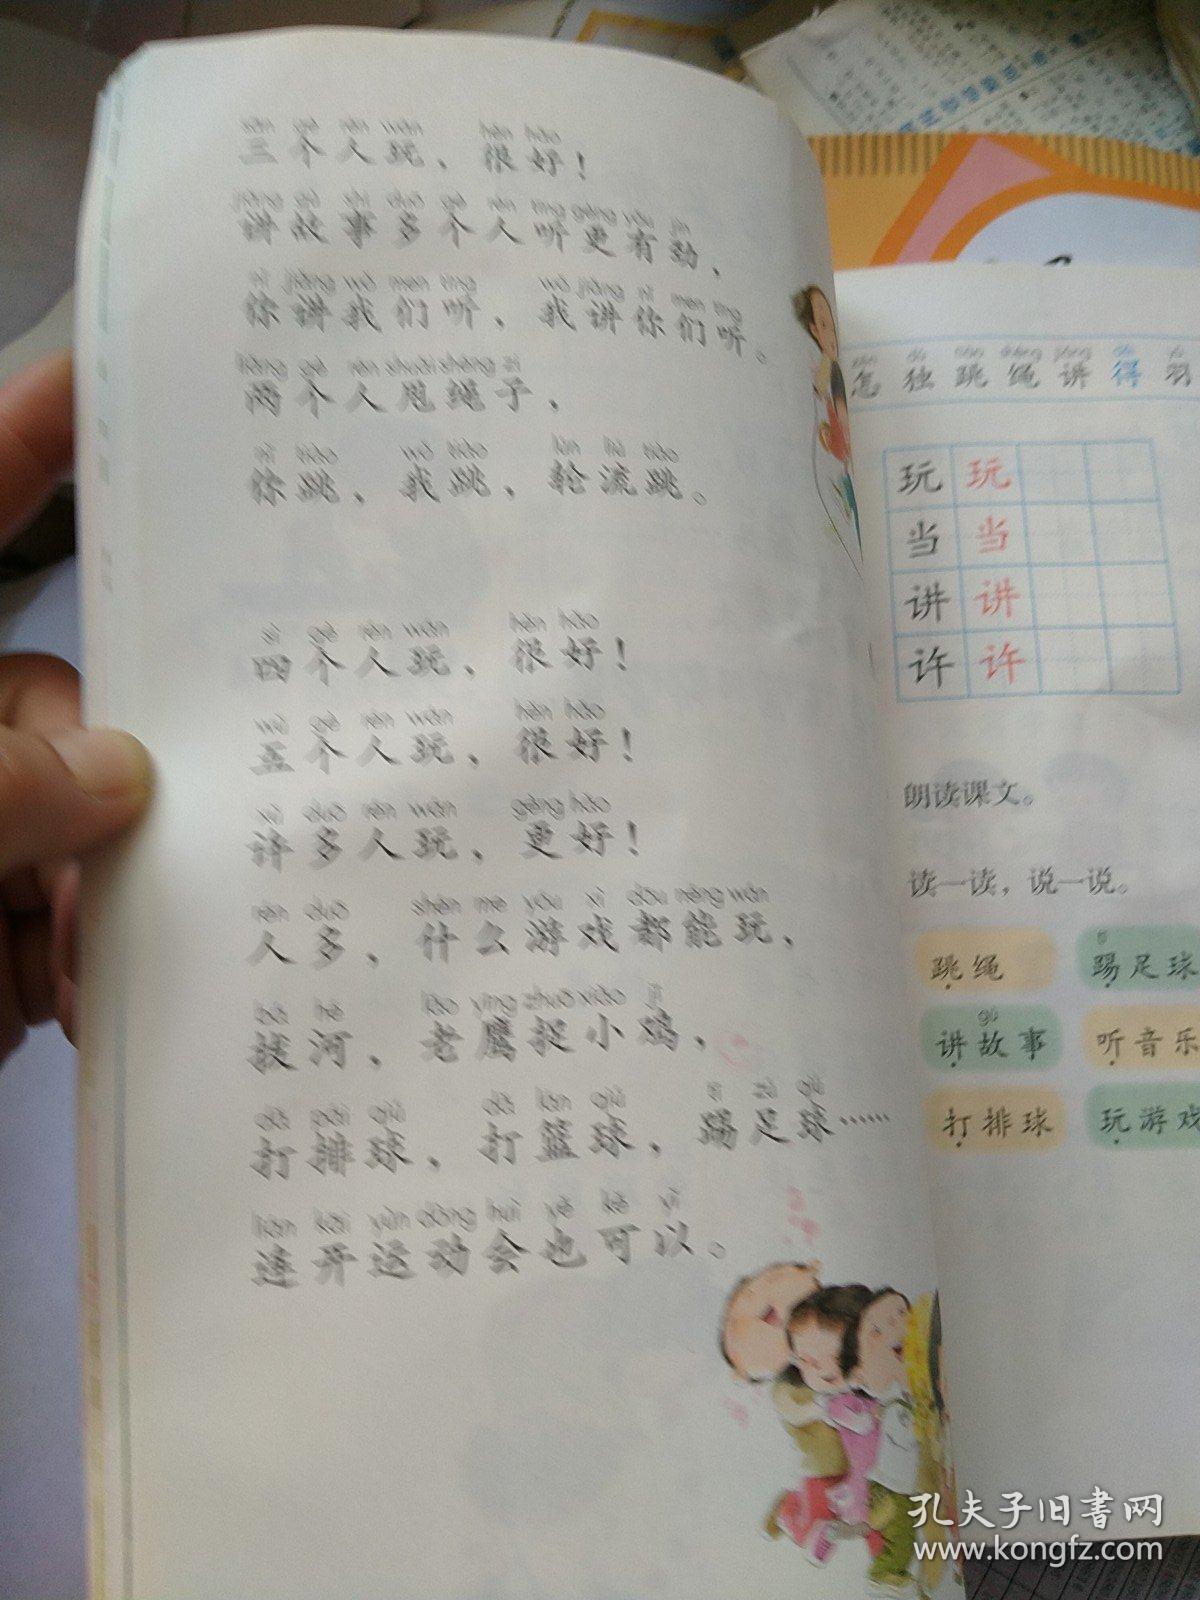 sān gè rén wán hěn hǎo
三个人玩，很好！
jiǎng gù shì duō gè rén tīng gèng yǒu jìn
讲故事多个人听更有劲，
nǐ jiǎng wǒ men tīng wǒ jiǎng nǐ men tīng
你讲我们听，我讲你们听。
liǎng gè rén shuǎi shéng zi
两个人甩绳子，
nǐ tiào wǒ tiào lún liú tiào
你跳，我跳，轮流跳。
sì gè rén wán hěn hǎo
四个人玩，很好！
wǔ gè rén wán hěn hǎo
五个人玩，很好！
xǔ duō rén wán gèng hǎo
许多人玩，更好！
rén duō shén me yóu xì dōu néng wán
人多，什么游戏都能玩，
bá hé lǎo yīng zhuō xiǎo jī
拔河，老鹰捉小鸡，
dǎ pái qiú dǎ lán qiú tī zú qiú
打排球，打篮球，踢足球……
lián kāi yùn dòng huì yě kě yǐ
连开运动会也可以。
怎 独 跳 绳 讲 得 羽
玩 玩
当 当
讲 讲
许 许
朗读课文。
读一读，说一说。
跳绳
tī
踢足球
gù
讲故事
听音乐
打排球
玩游戏
孔夫子旧书网
www.kongfz.com